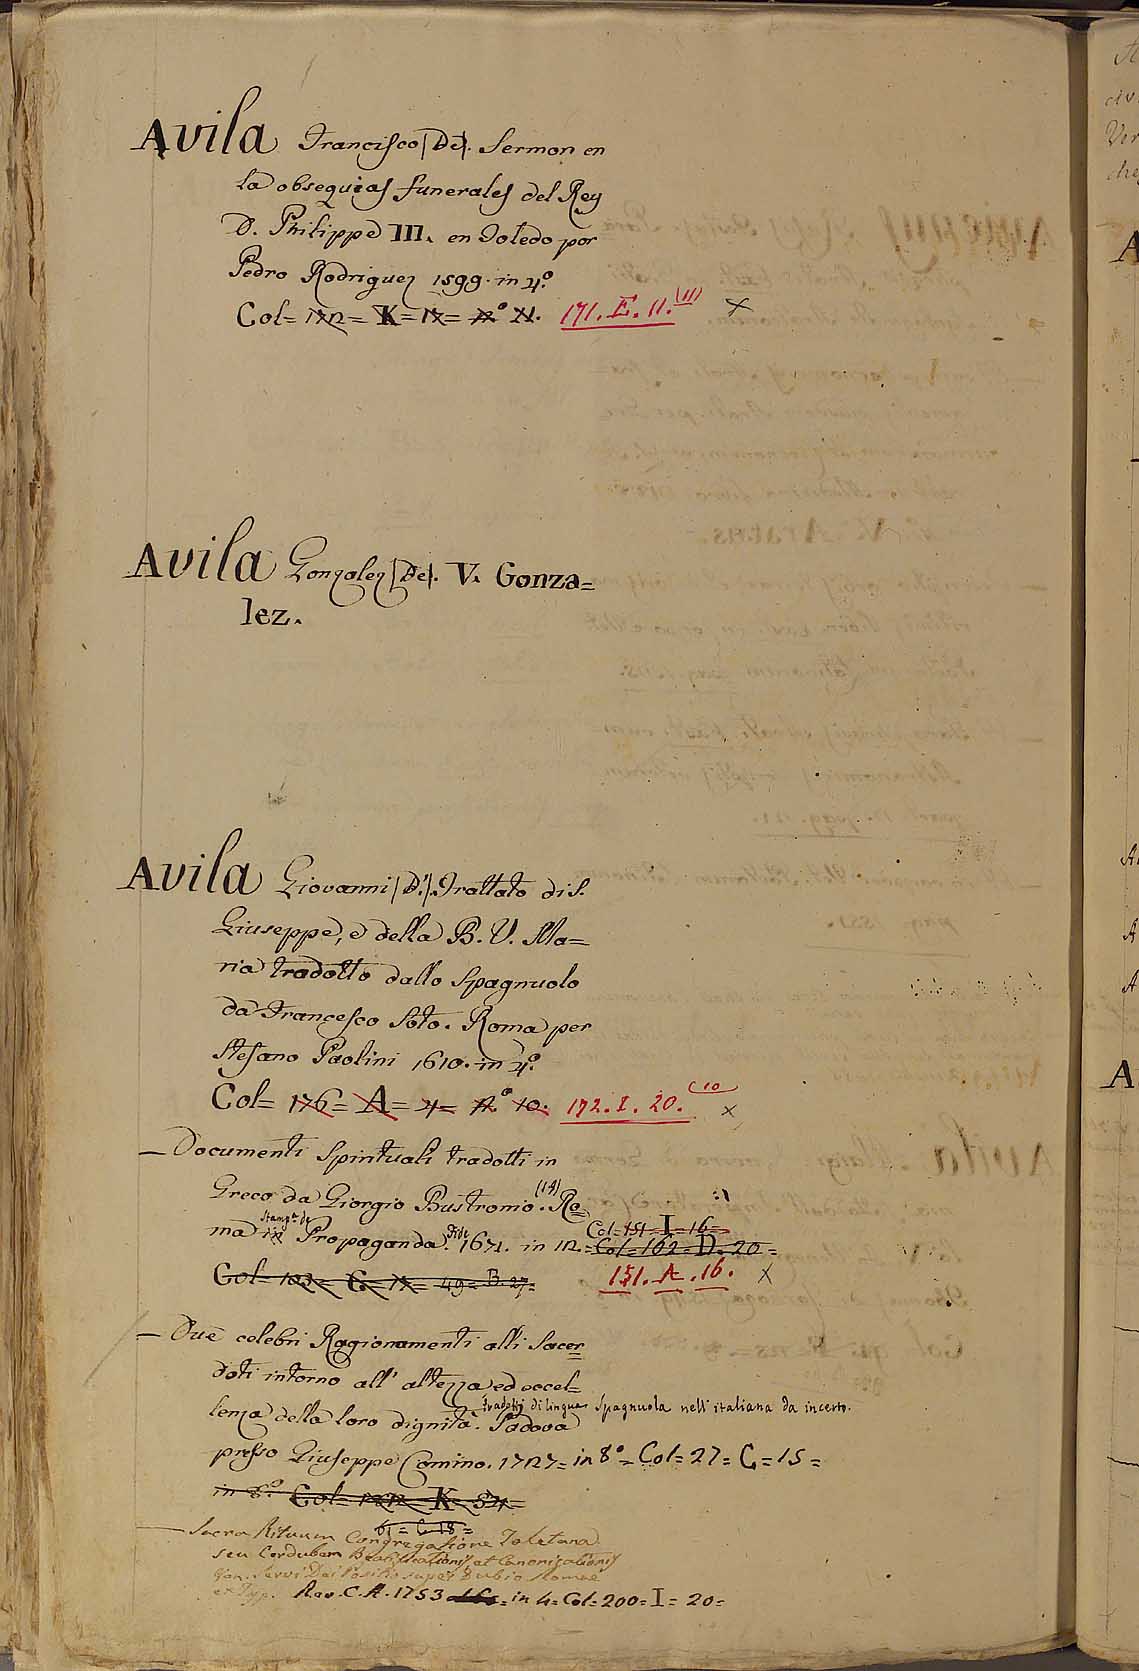 Avila Francisco (De). Sermon en
la obsequias funerales del Rey
D. Philippe III. en Toledo por
Pedro Rodriguez 1599. in 4.º
Col= 172= K= 12= n.º 11. 171. E. 11.(11) X
Avila Gonzalez (De). V. Gonza=
lez.
Avila Giovanni (D'). Trattato di S.
Giuseppe, e della B. V. Ma=
ria tradotto dallo Spagnuolo
da Francesco Soto. Roma per
Stefano Paolini 1610. in 4.º
Col= 176= A= 4= n.º 10. 172. I. 20. (10 X
— Documenti Spirituali tradotti in
Greco da Giorgio Bustronio. (14) Ro=
Stamp.ª de Fide Col= 151= I= 16=
ma in Propaganda. 1671. in 12.= Col= 162= D= 20=
Col= 102= C= 12= 49= B. 27= 151. A. 16. X
— Due celebri Ragionamenti alli Sacer=
doti intorno all' altezza ed eccel=
tradotti di lingua Spagnuola nell' italiana da incerto.
lenza della loro dignità. Padova
presso Giuseppe Comino. 1727= in 8º= Col= 27= C= 15=
in 8.º Col= K=
61= C. 18=
— Sacra Rituum Congregatione Toletana
seu Corduben Beatificationis, et Canonizationis
Servi Dei Positio super Dubio Romae
ex Typ. Rev. C. A. 1753 = in 4= Col= 200= I= 20=